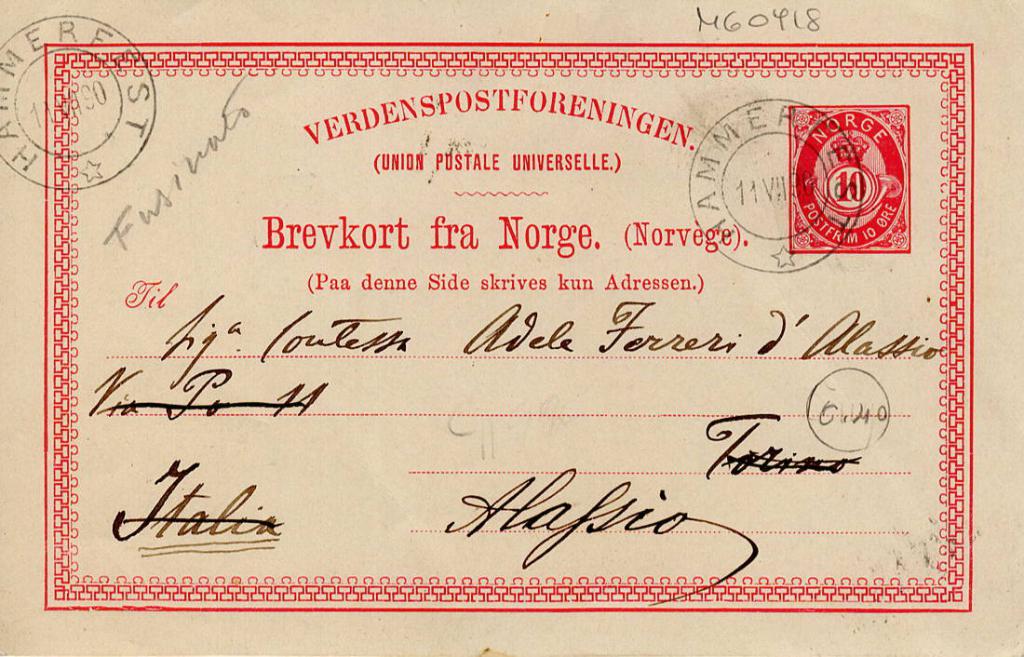 M60418
HAMMERFEST
11 VII 90
Fusinato
VERDENSPOSTFORENINGEN.
(UNION POSTALE UNIVERSELLE.)
HAMMERFEST
11 VII 90
NORGE
10
POSTFRIM 10 ØRE
Brevkort fra Norge. (Norvège).
(Paa denne Side skrives kun Adressen.)
Til
Sigª. Contessa Adele Ferreri d'Alassio
Via Po 11
Torino
Italia
Alassio